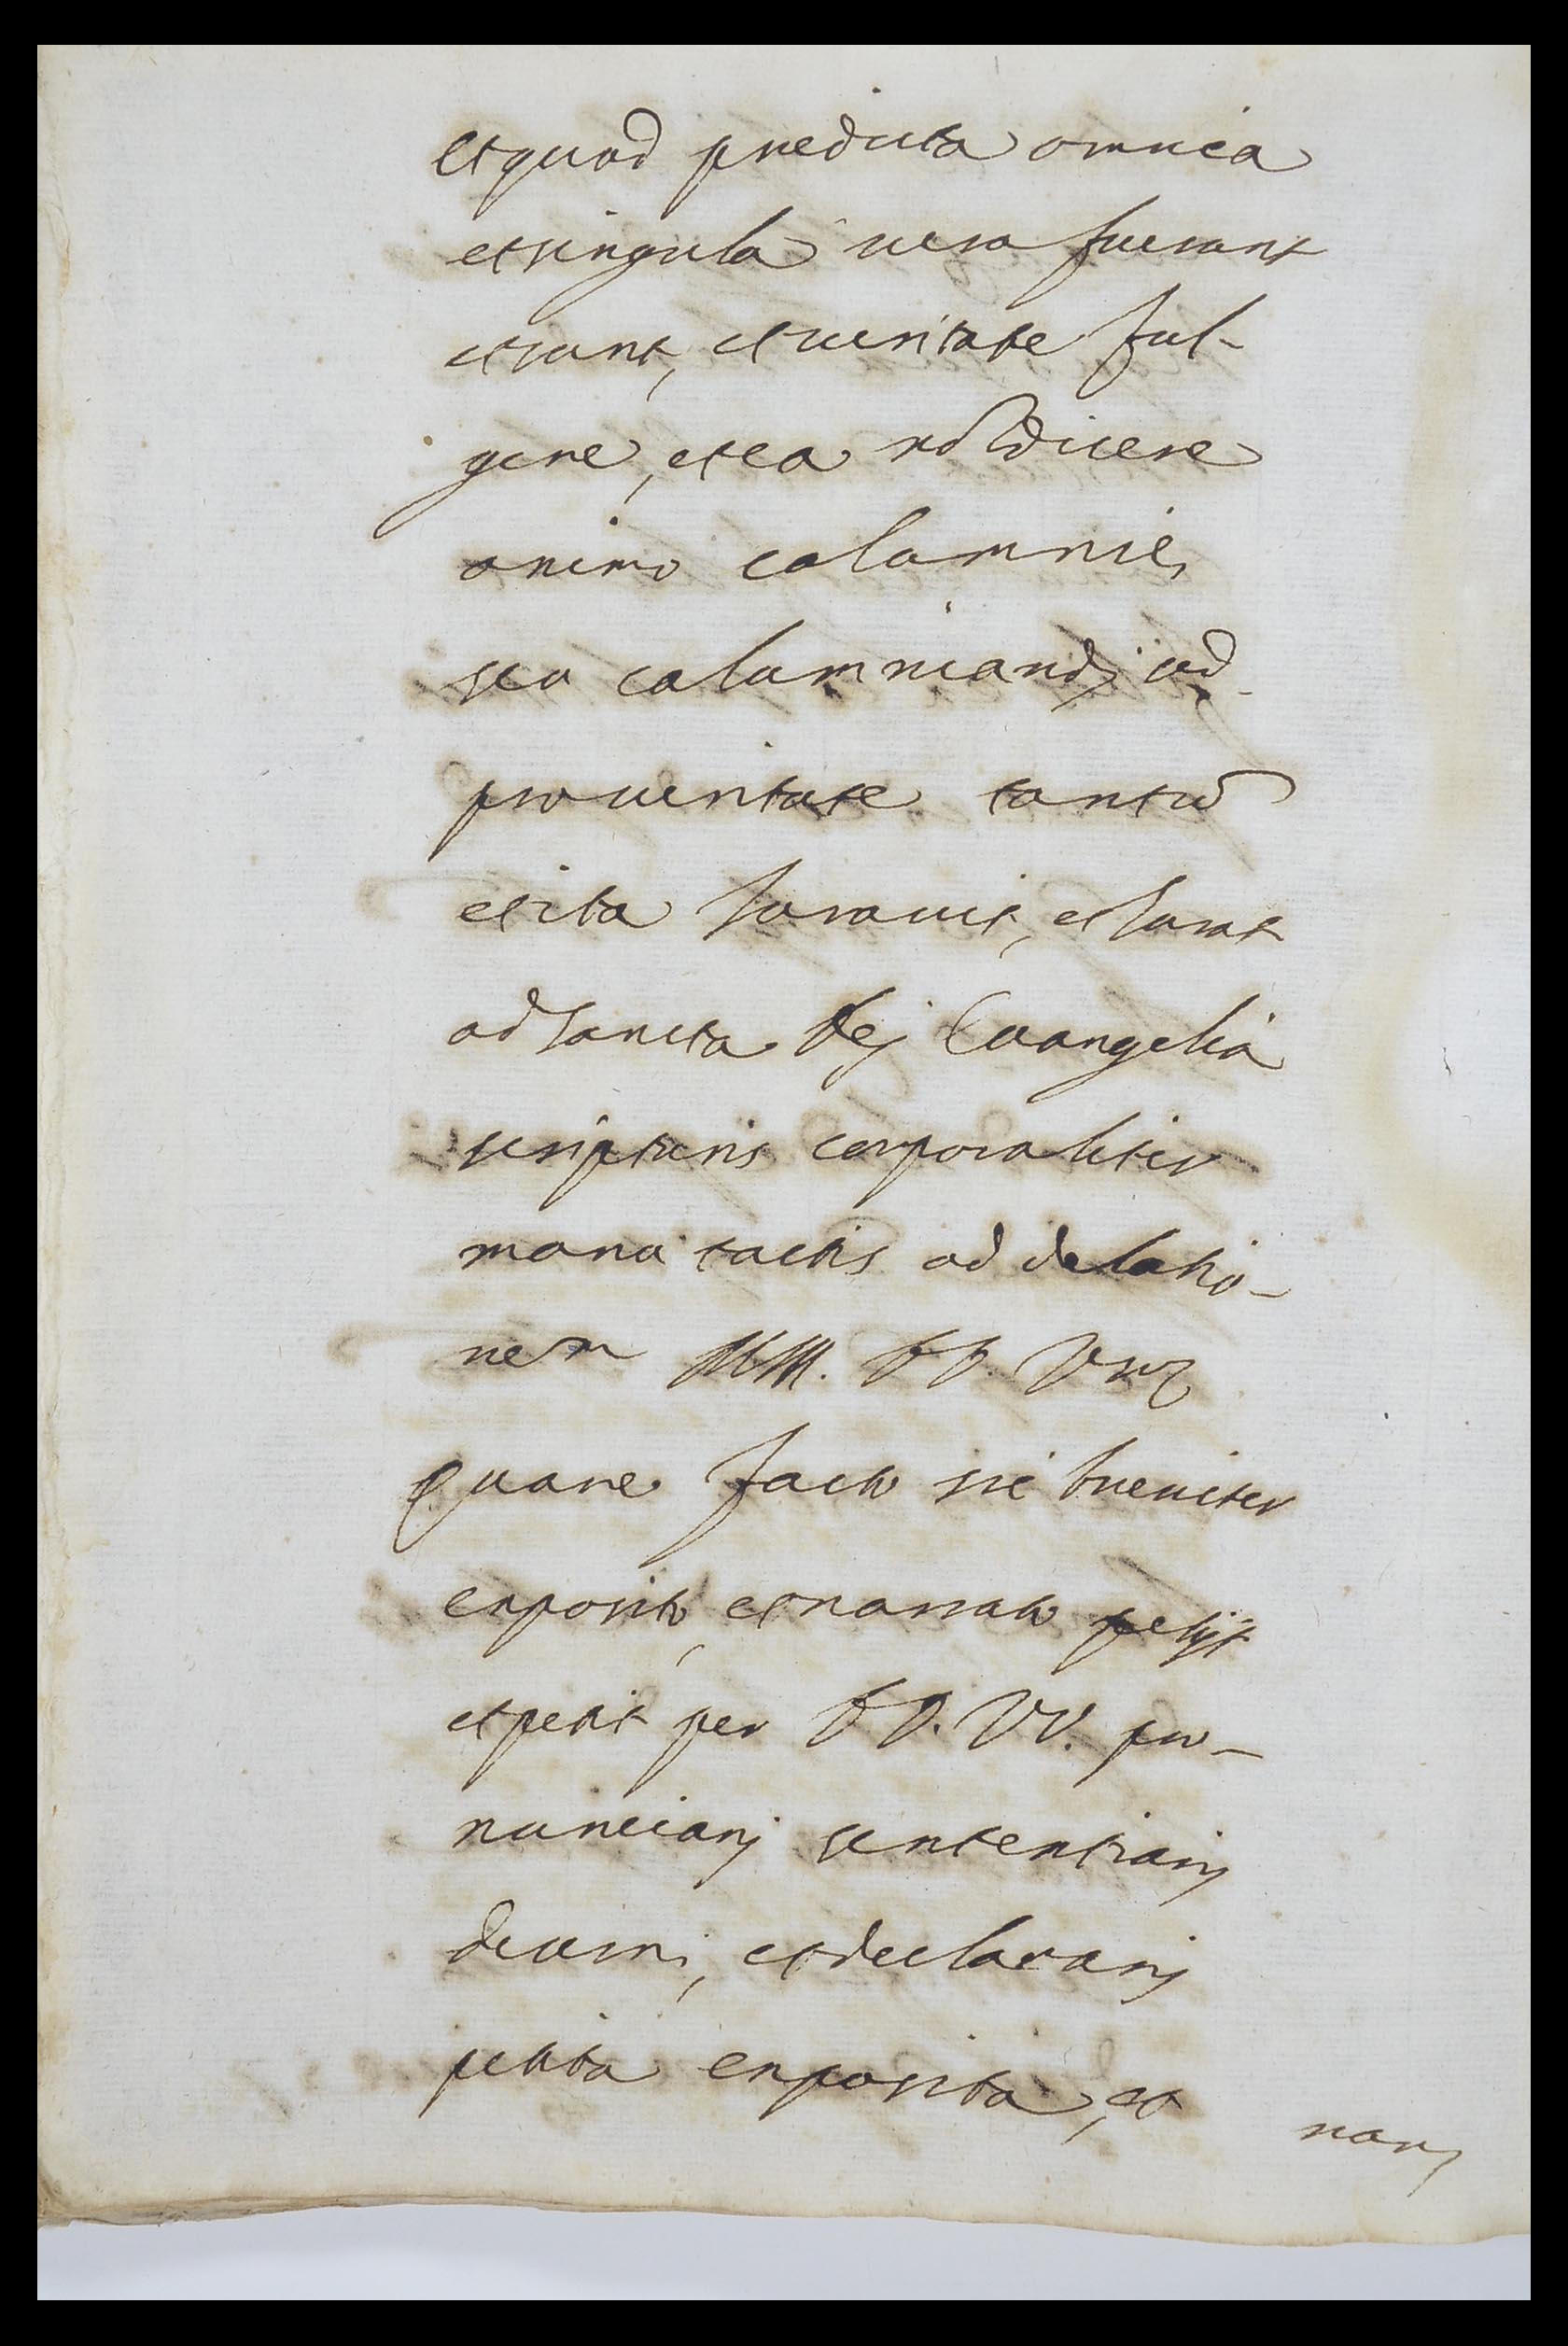 Et quod predicta omnia
et singula vera fuerant
et sunt, et veritate ful-
gere, et ea nõ dicere
animo calumnie,
seu calumniandj sed
pro veritate tantũ
et ita Juravit, et Jurat
ad Sancta Dej Evangelia
scripturis corporaliter
manu tactis ad delatio-
nem DD. VV.
Quare facto sic breviter
exposito, et narrato petijt
et petit per DD. VV. pro-
nunciarj sententiarj
decerni, et declararj
petita exposita, et
narr